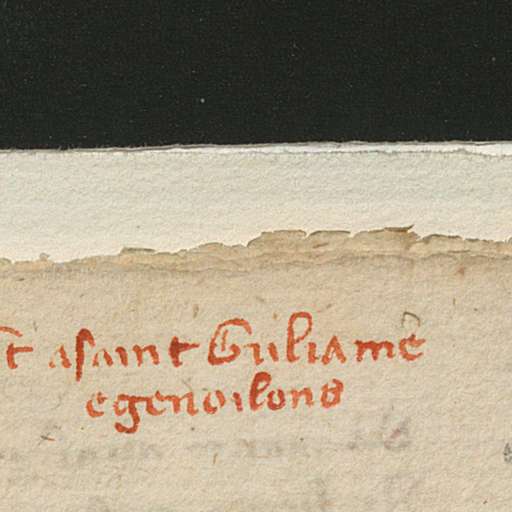 t asaint Guliame
egenoilons